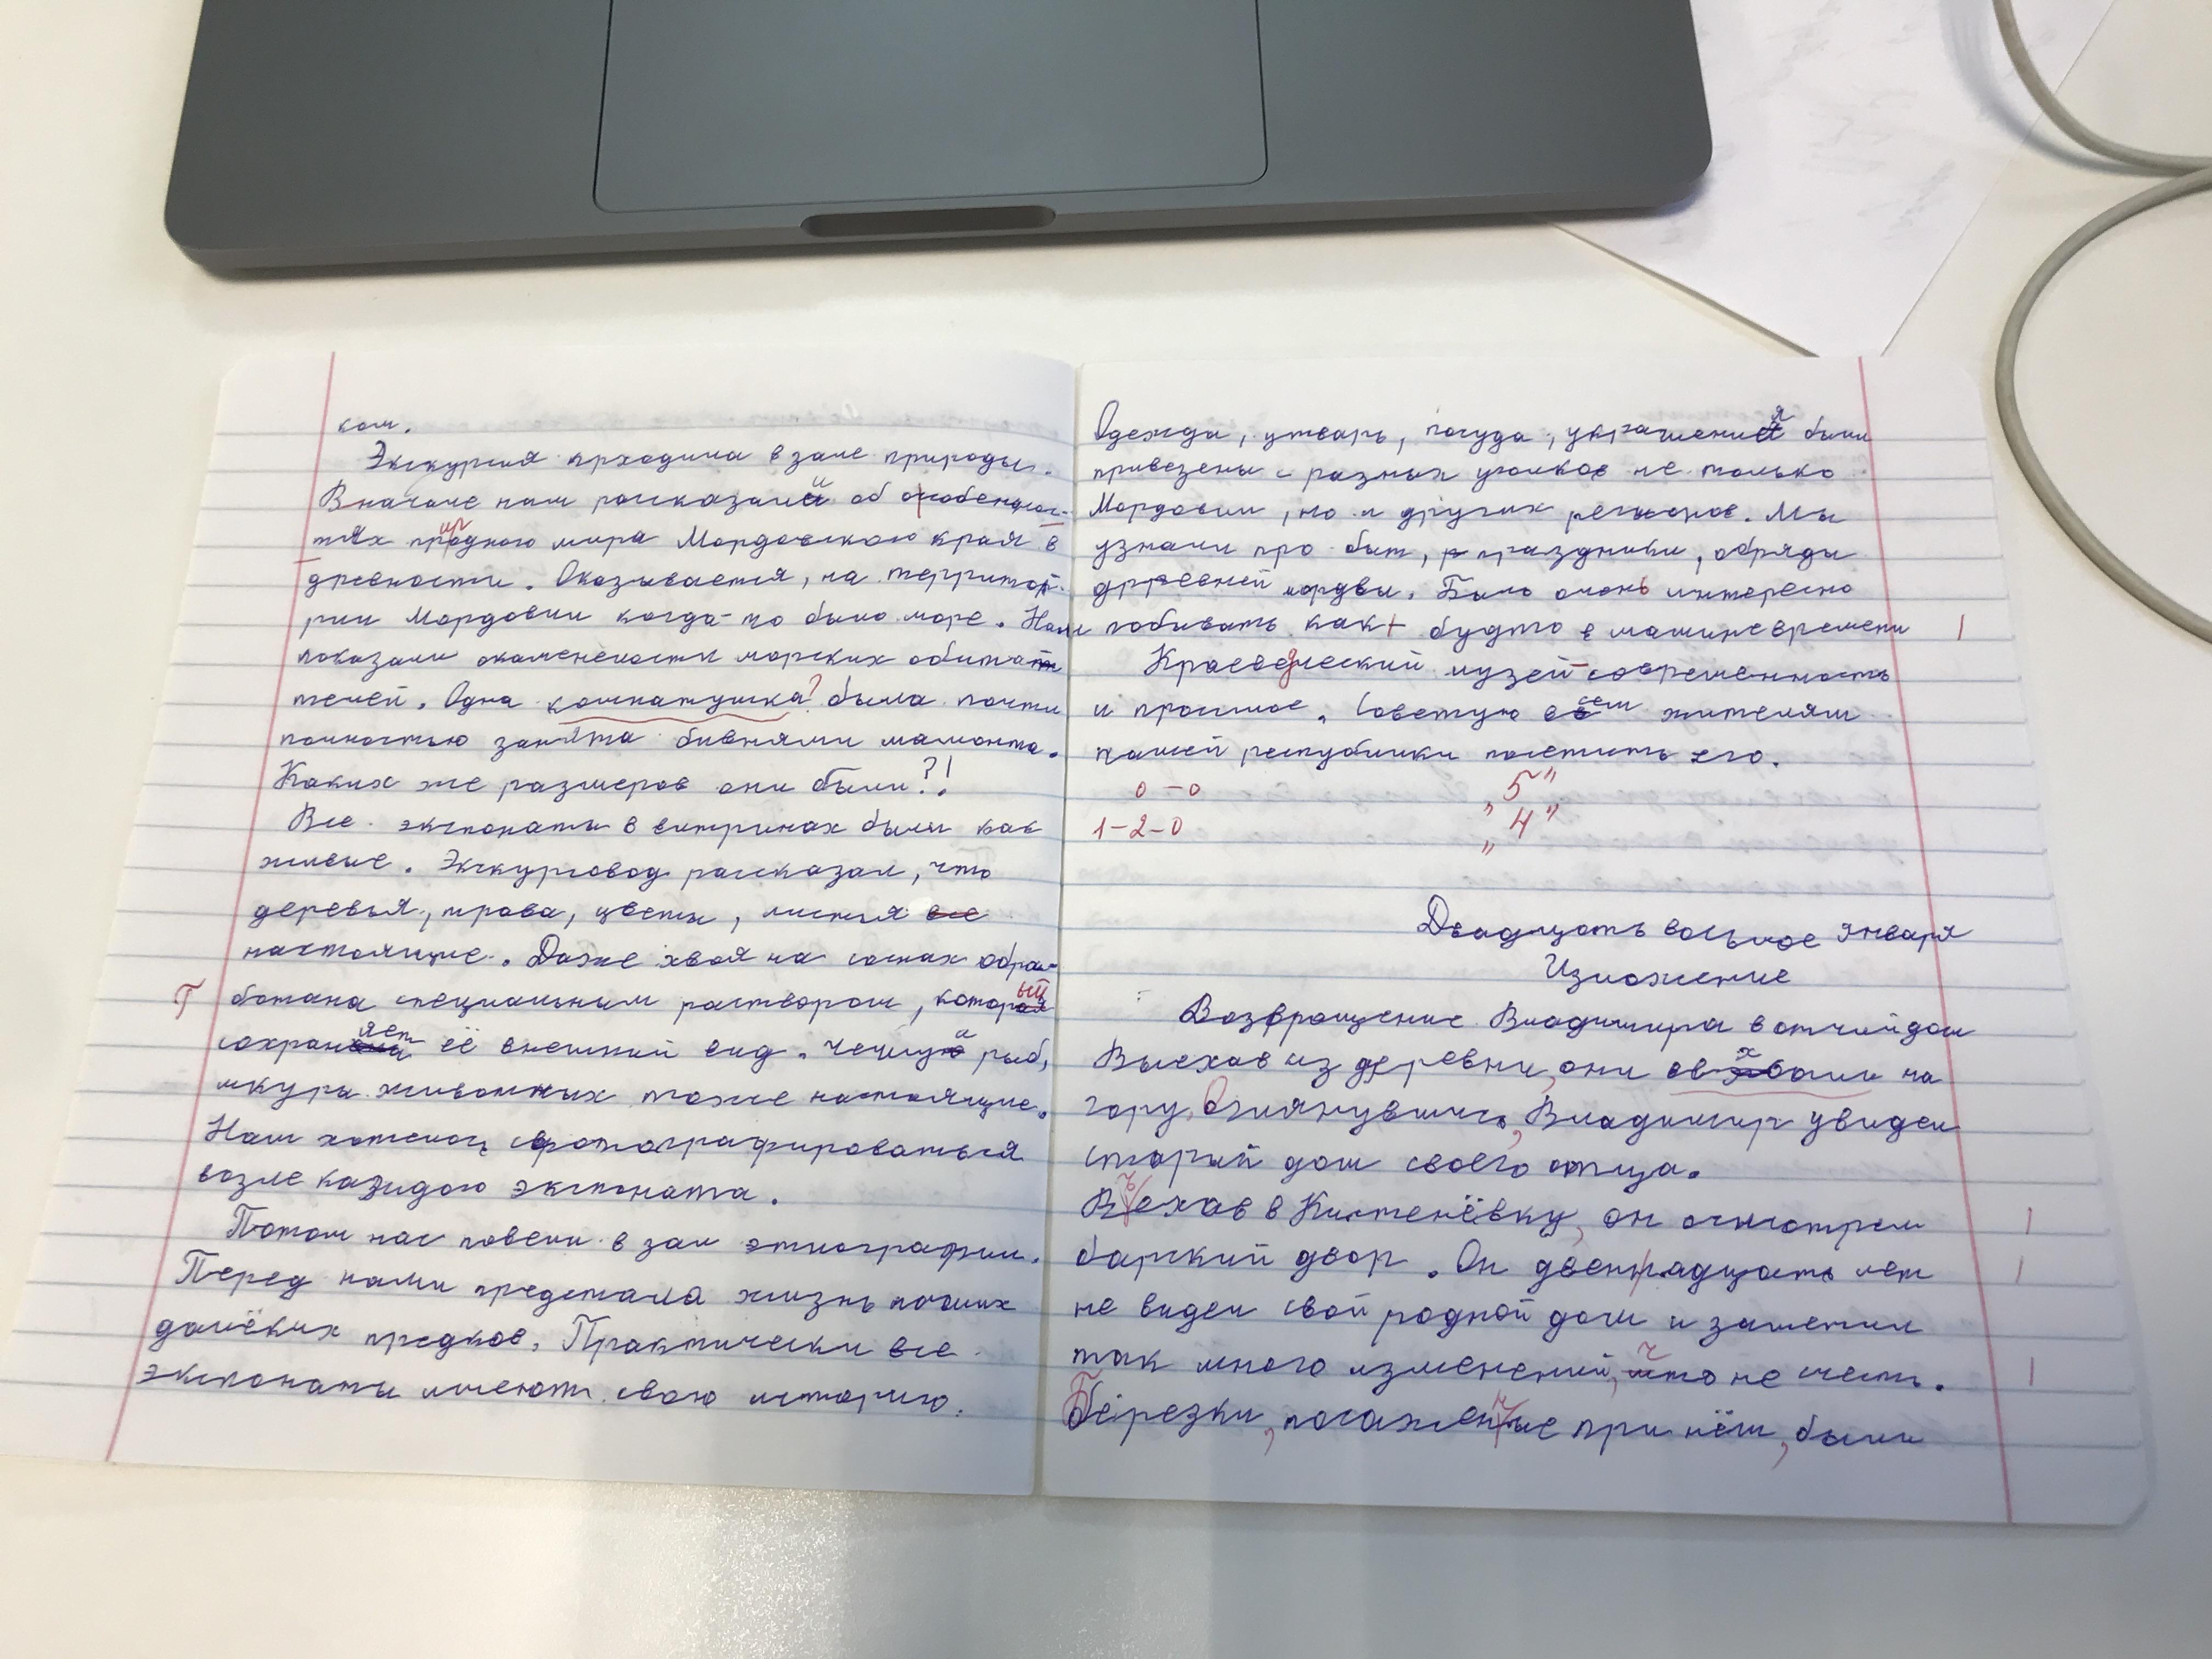 ком.
Экскурсия прходила в зале природы.
Вначале нам рассказали об особеннос-
тях природного мира Мордовского края в
древности. Оказывается, на террито-
рии Мордовии когда-то было море. Нам
показали окаменелости морских обита-
телей. Одна комнатушка? была почти
полностью занята бивнями мамонта.
Каких же размеров они были?!
Все экспонаты в витринах были как
живые. Экскурсовод рассказал, что
деревья, трава, цветы, листья все
настоящие. Даже хвоя на соснах обра-
Г ботана специальным раствором, который
сохраняет её внешний вид. Чешуя рыб,
шкура животных тоже настоящие.
Нам хотелось сфотографироваться
возле каждого экспоната.
Потом нас повели в зал этнографии.
Перед нами предстала жизнь наших
далёких предков. Практически все
экспонаты имеют свою историю.
Одежда, утварь, посуда, украшения были
привезены с разных уголков не только
Мордовии, но и других регионов. Мы
узнали про быт, праздники, обряды
древней мордвы. Было очень интересно
побывать как будто в машине времени |
Краеведческий музей-современность
и прошлое. Советую всем жителям
нашей республики посетить его.
0-0 "5"
1-2-0 "4"
"
Двадцать восьмое января
Изложение
Возвращение Владимира в отчий дом
Выехав из деревни, они въхали на
гору. Оглянувшись, Владимир увидел
старый дом своего отца.
Въехав в Кистенёвку, он осмотрел |
барский двор. Он двеннадцать лет |
не видел свой родной дом и заметил
так много изменений, что не счесть. |
Берёзки, посаженные при нём, были